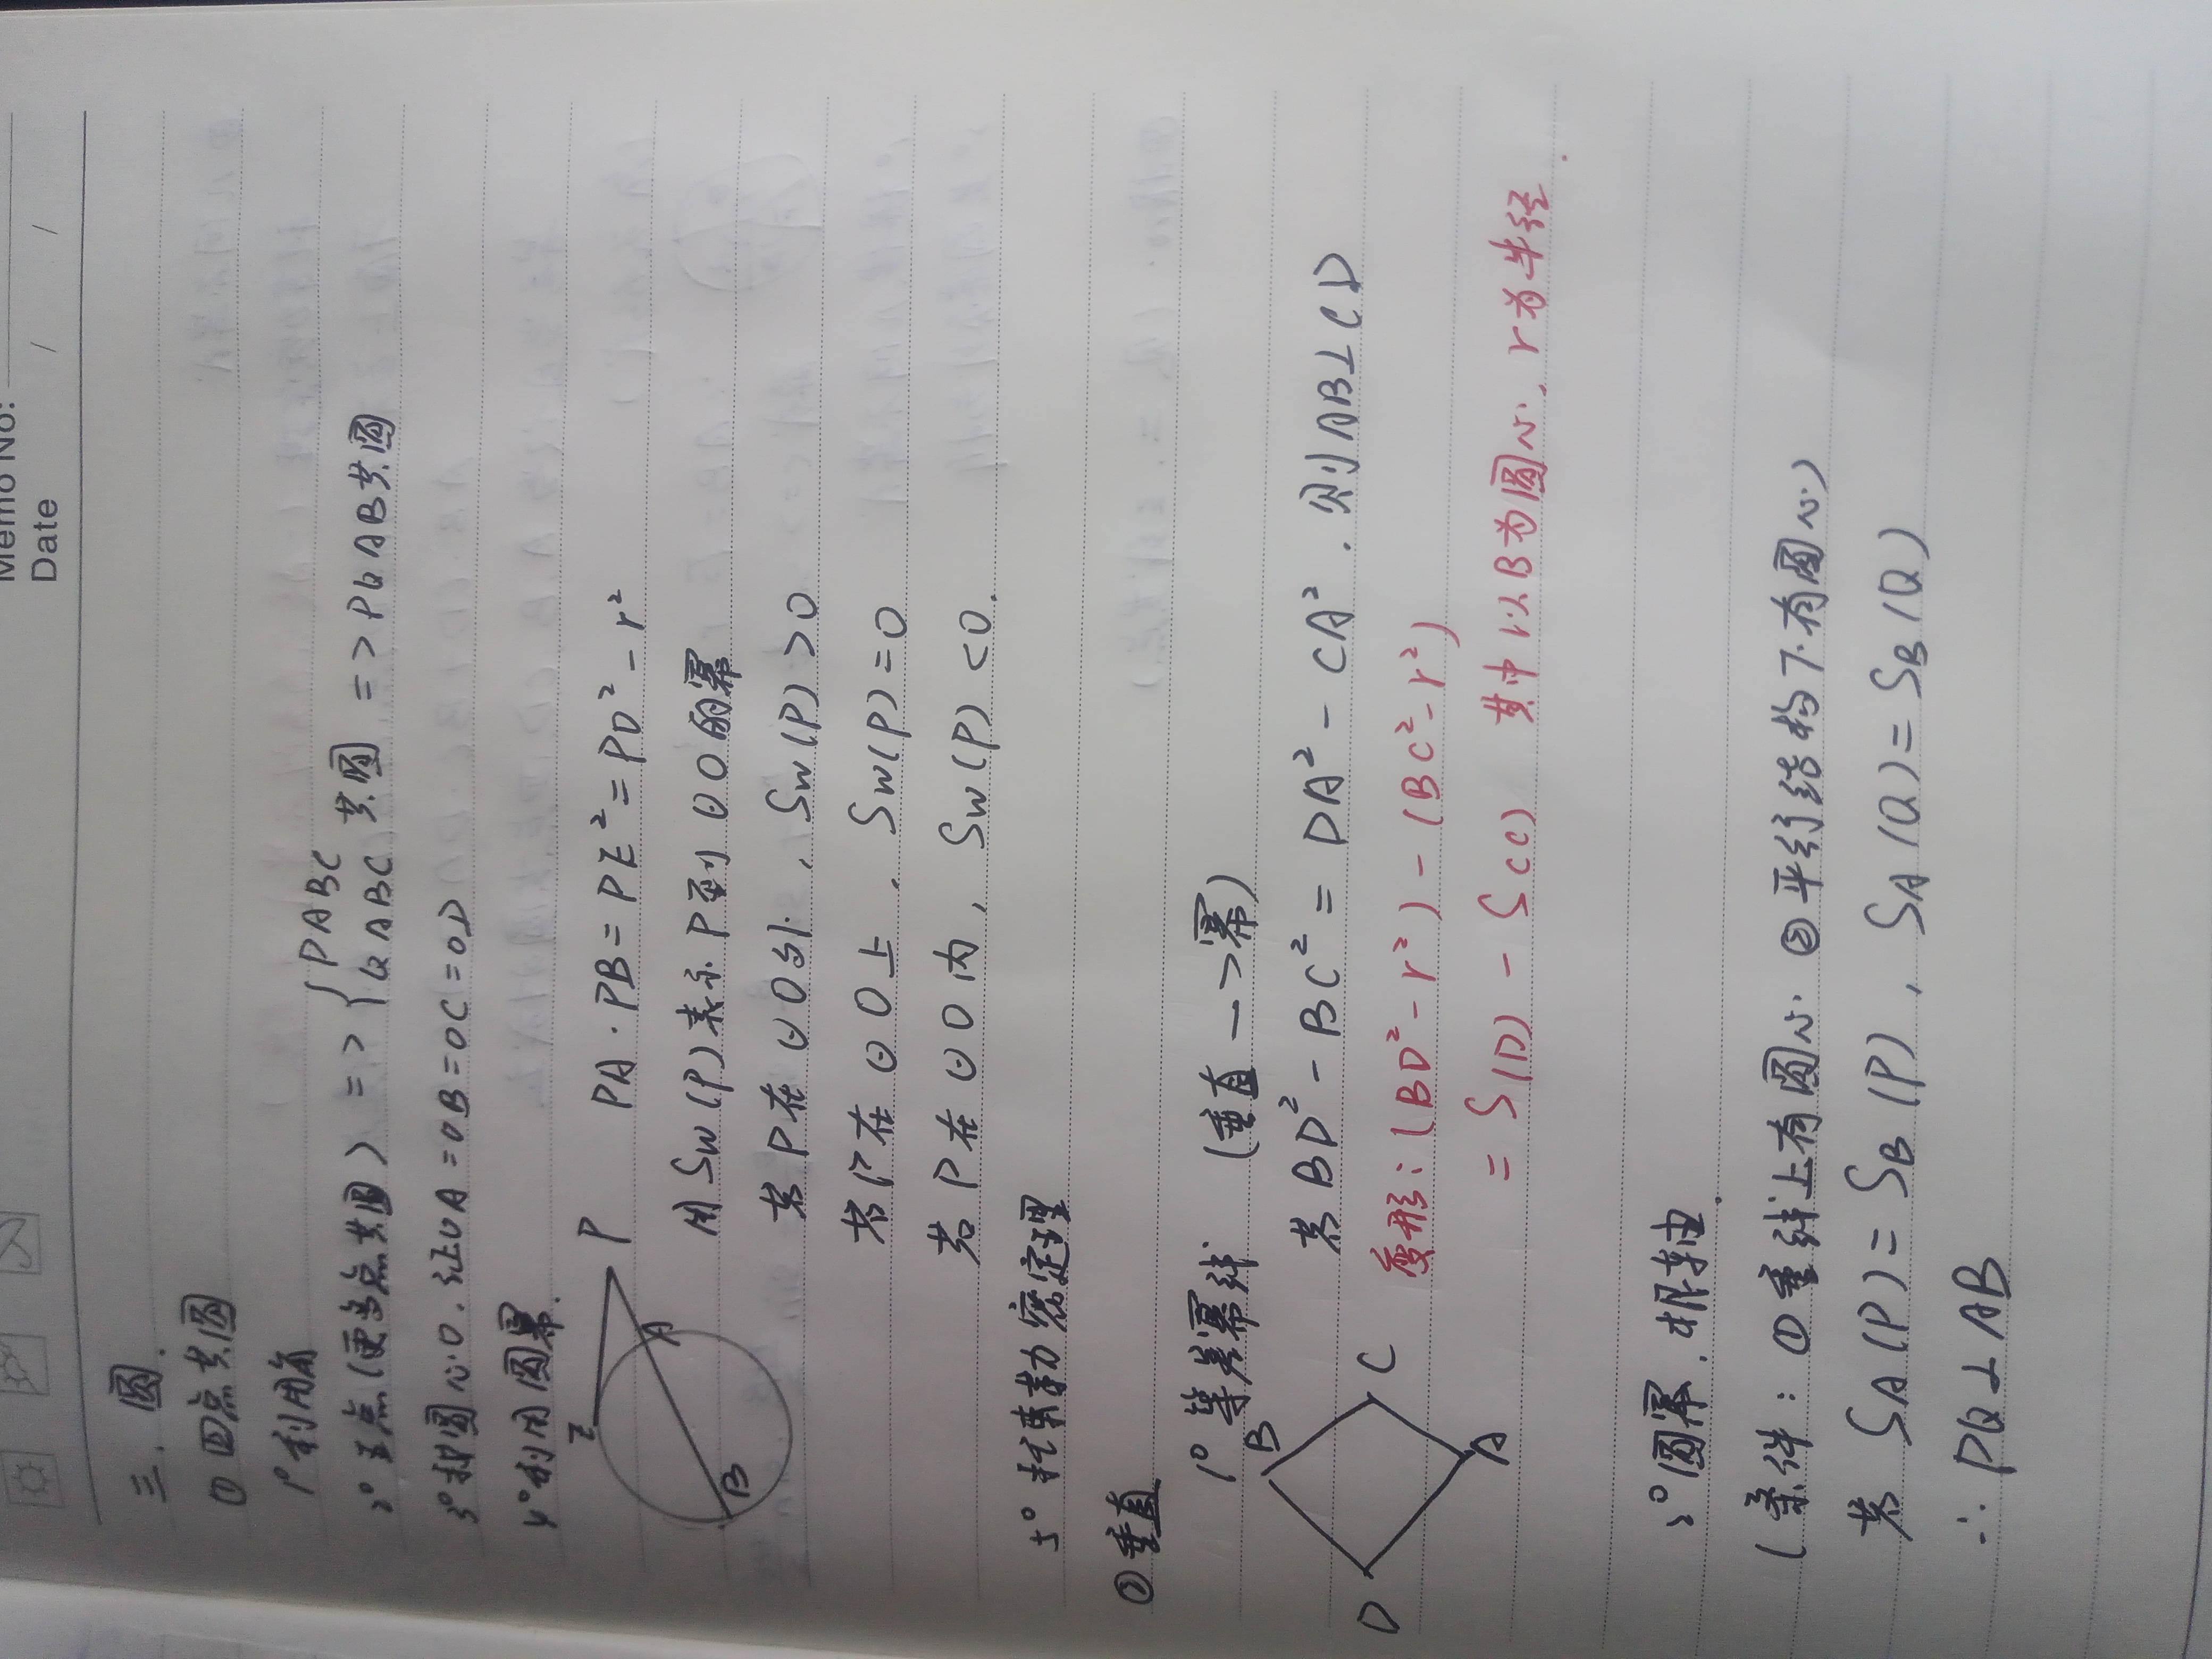 Memo No:
Date / /
三. 圆.
① 四点共圆
1° 利用角
2° 五点(更多点共圆) => { PABC
QABC 共圆 => PQAB共圆
3° 找圆心O. 证OA=OB=OC=OD
4° 利用圆幂.
P
E
A
B
PA·PB=PE²=PO²-r²
用Sw(P)表示P到⊙O的幂
若P在⊙O外, Sw(P)>0
若P在⊙O上, Sw(P)=0
若P在⊙O内, Sw(P)<0.
5° 托勒密定理
② 垂直
1° 等差幂线 (垂直—>幂)
B
C
D
A
若BD²-BC²=DA²-CA². 则AB⊥CD
变形:(BD²-r²)-(BC²-r²)
=S(D)-S(C) 其中以B为圆心, r为半径.
2° 圆幂. 根轴.
(条件: ①垂线上有圆心. ②平行结构下有圆心)
若 SA(P)=SB(P), SA(Q)=SB(Q)
∴ PQ⊥AB